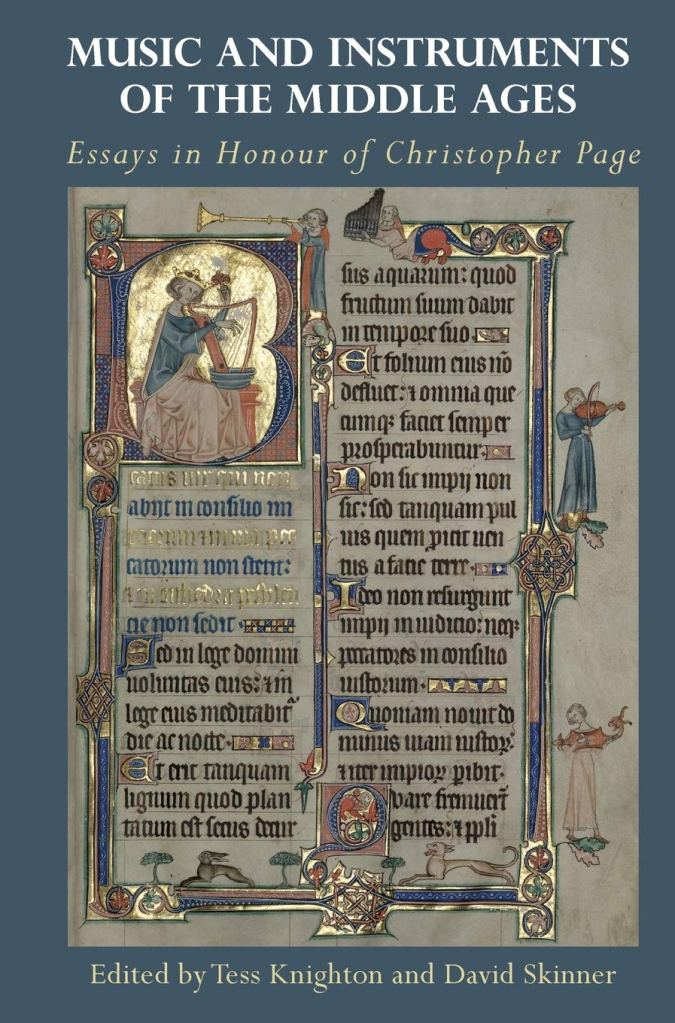 MUSIC AND INSTRUMENTS
OF THE MIDDLE AGES
Essays in Honour of Christopher Page
B
eatus uir qui non
abijt in consilio im
piorum ⁊ in uia pec
catorum non stetit:
⁊ in cathedra pestilen
cie non sedit
Sed in lege domini
uoluntas eius: ⁊ in
lege eius meditabit᷑
die ac nocte.
Et erit tanquam
lignum quod plan
tatum est secus decur
sus aquarum: quod
fructum suum dabit
in tempore suo.
Et folium eius nō
defluet: ⁊ omnia que
cumqꝫ faciet semper
prosperabuntur.
Non sic impij non
sic: sed tanquam pul
uis quem ꝓicit uen
tus a facie terre.
Ideo non resurgunt
impij in iudicio: neqꝫ
peccatores in consilio
iustorum.
Quoniam nouit do
minus uiam iustoꝝ
⁊ iter impioꝝ ꝑibit.
Quare fremuer̄t
gentes: ⁊ ppli
Edited by Tess Knighton and David Skinner